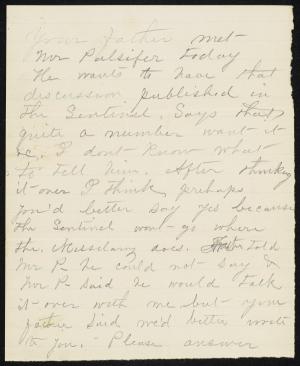 Your father met
Mr Palsifer today
He wants to have that
discussion published in
the Sentinel. Says that
quite a number want it
&c. I dont know what
to tell him. After thinking
it over I think perhaps
you'd better say yes because
the Sentinel wont go where
the Missilany does. told
Mr P. he could not say &
Mr P. said he would talk
it over with me but your
father said we'd better write
to you. - Please answer